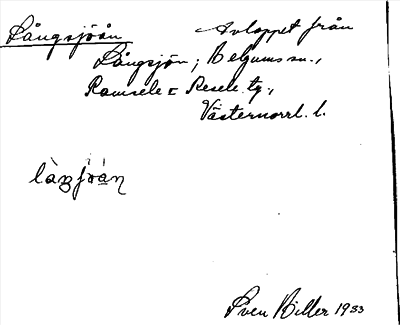 Långsjöån Avloppet från
Långsjön; Helgums sn.,
Ramsele o Resele tg.,
Västernorrl. l.
Sven Biller 1933